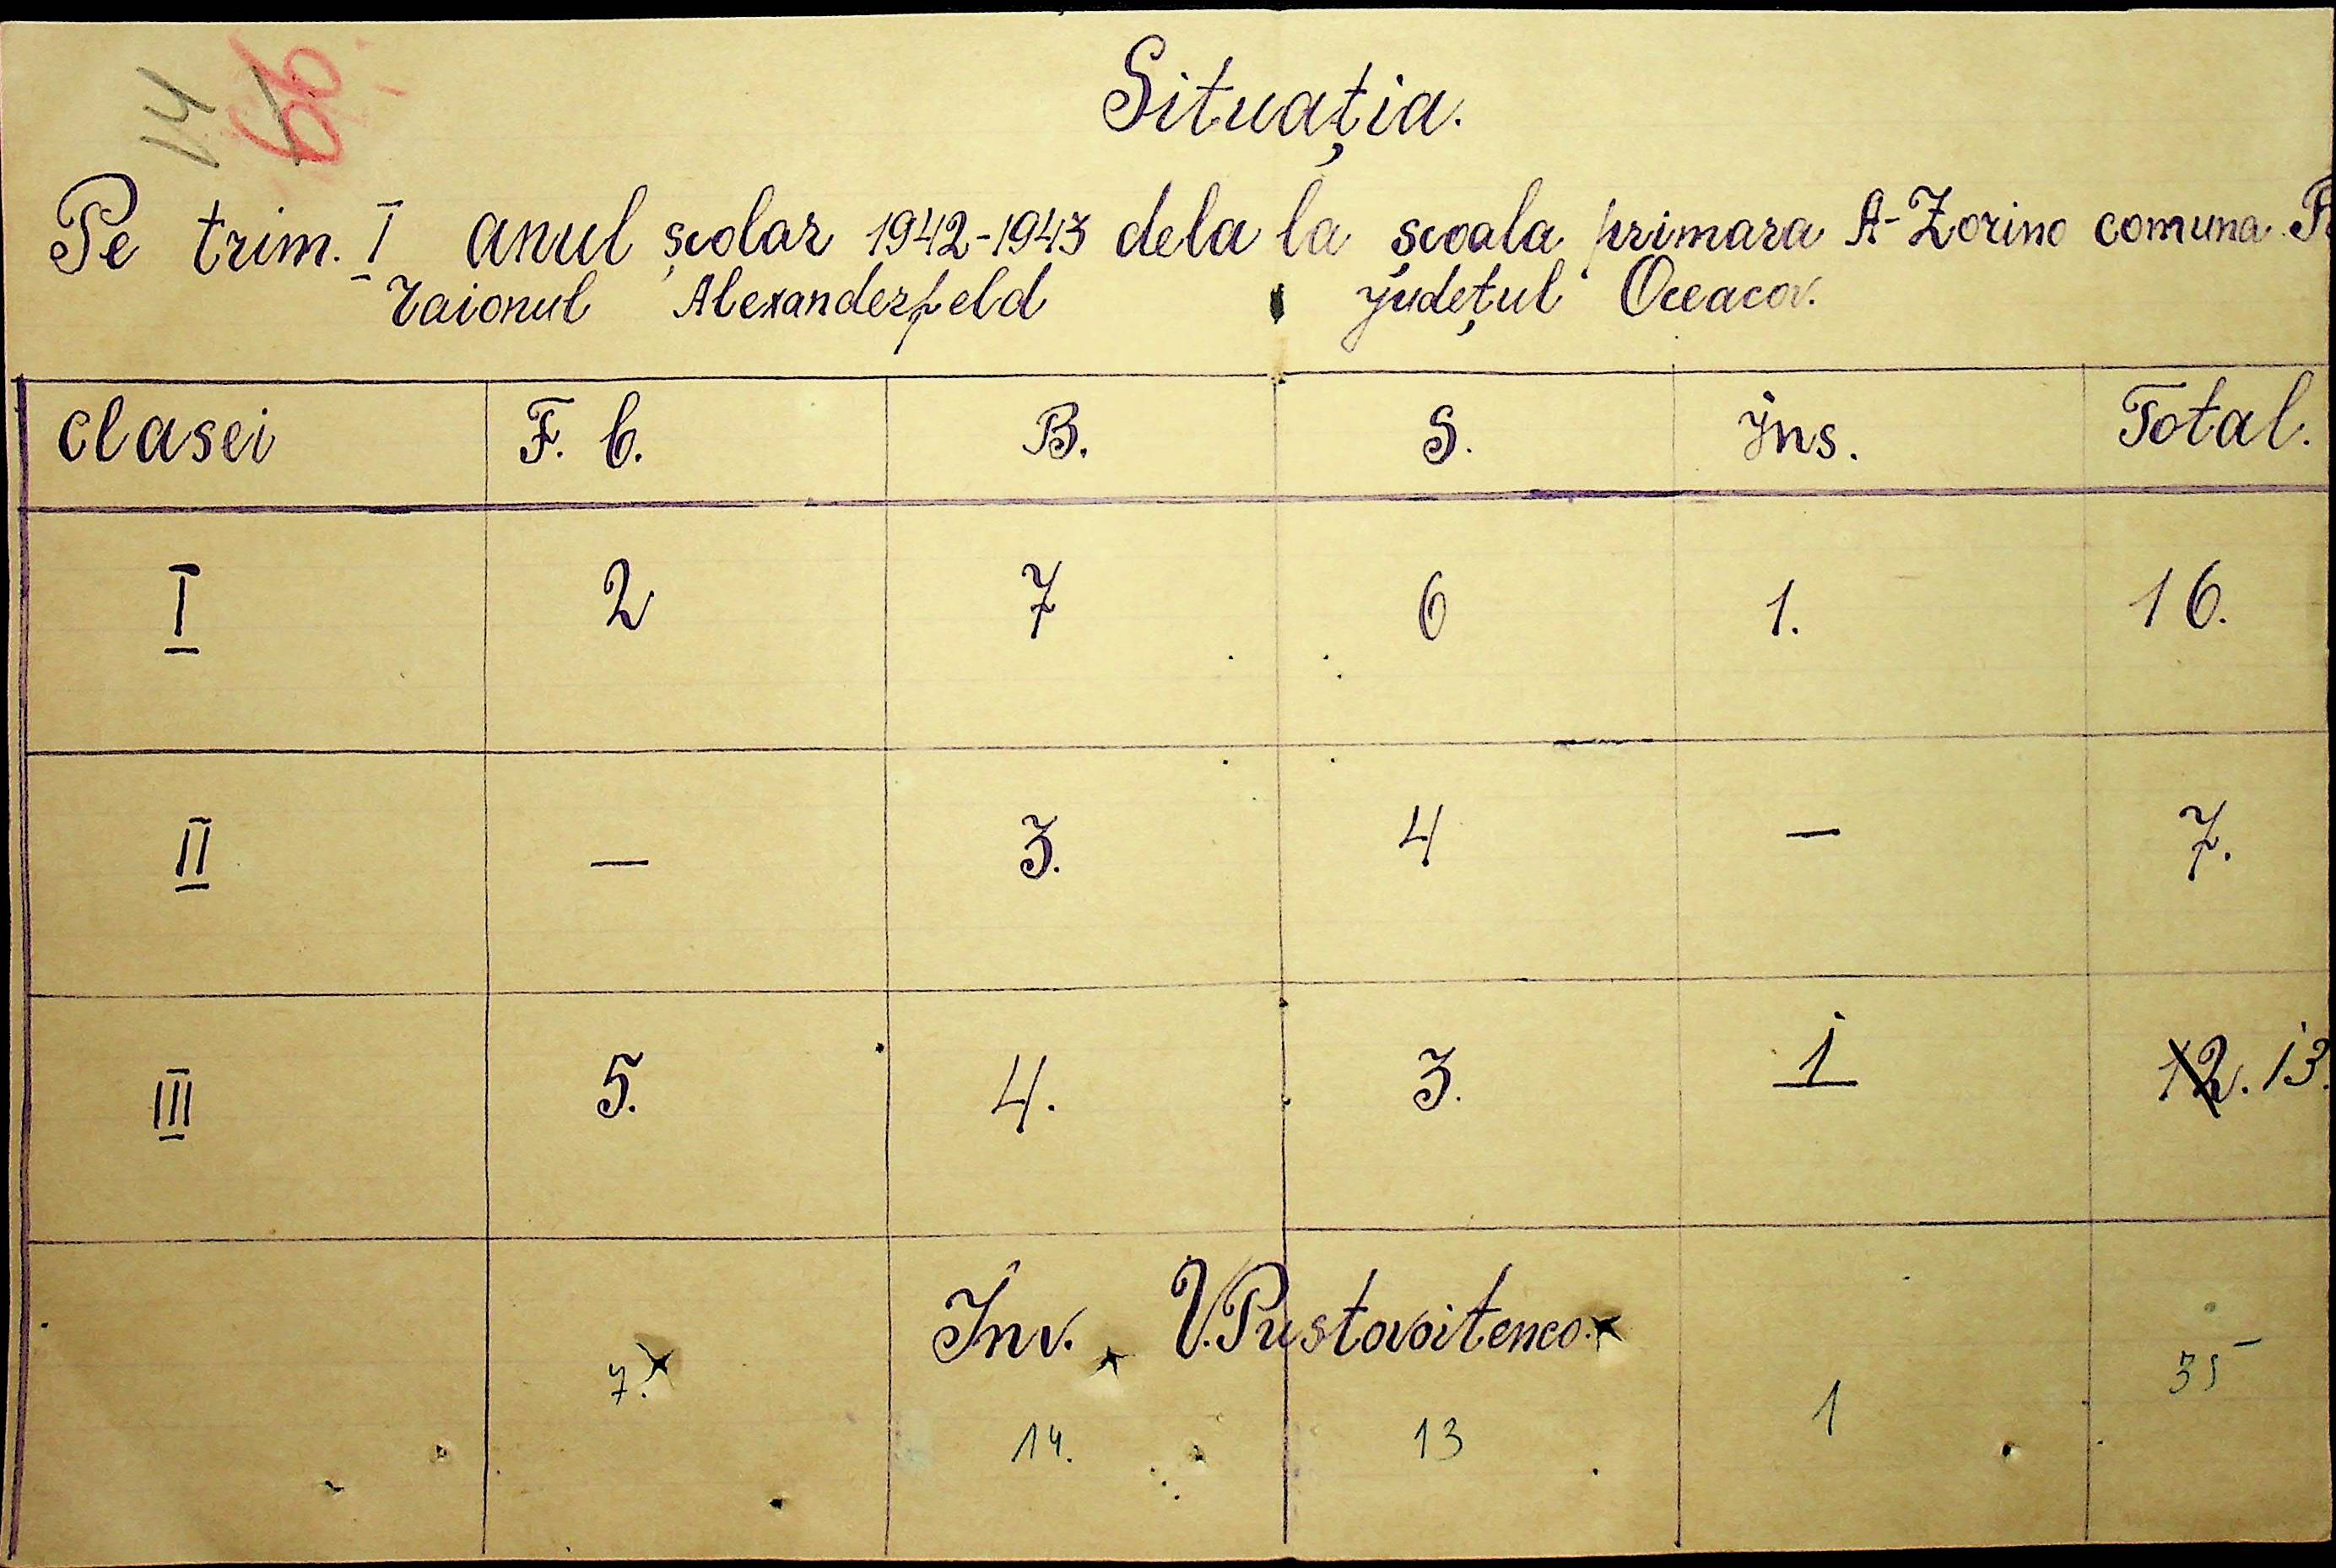 14
66
Situația.
Pe trim. I anul școlar 1942-1943 dela la școala primara A-Zorino comuna
raionul Alexanderfeld județul Oceacov.
clasei F. b. B. S. Ins. Total.
I 2 7 6 1. 16.
II — 3. 4 — 7.
III 5. 4. 3. 1 12. 13.
Inv. V. Pustovoitenco.
7. 14. 13 1 35